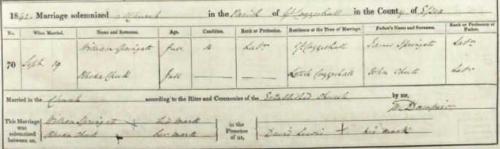 1842. Marriage solemnized at Church in the Parish of Gt Coggeshall in the County of Essex
No. When Married. Name and Surname. Age. Condition. Rank or Profession. Residence at the Time of Marriage. Father's Name and Surname. Rank or Profession of Father.
70 Sept. 29 William Springett Full Labr Gt Coggeshall James Springett Labr
Full Little Coggeshall John Labr
Married in the Church according to the Rites and Ceremonies of the Established Church by me,
This Marriage was solemnized between us, William Springett X his mark
her mark
in the Presence of us, David Lewin X his mark